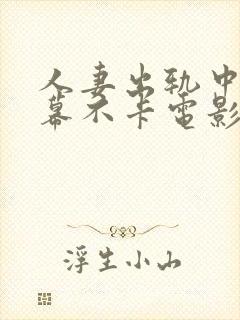 人妻出轨中
幕不卡電影
浮生小山